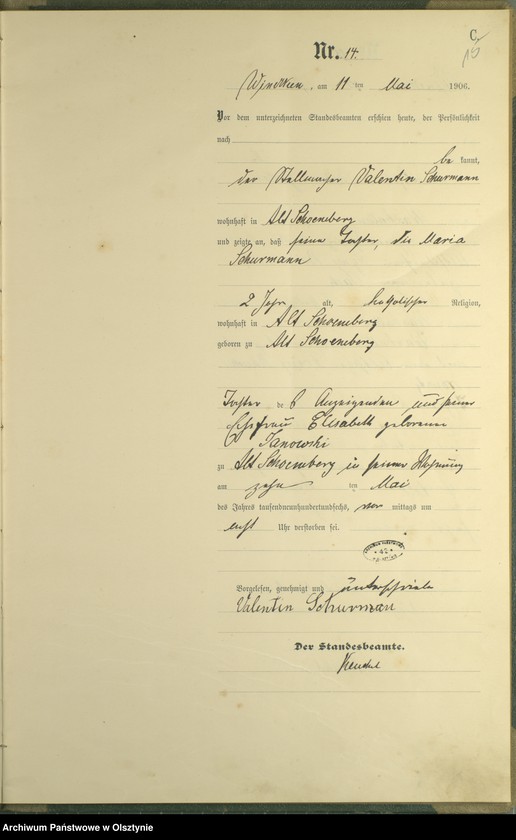 C.
15
Nr. 14.
am 11 ten Mai 1906.
Vor dem unterzeichneten Standesbeamten erschien heute, der Persönlichkeit
nach
be kannt,
der Stellmacher Valentin Schurmann
wohnhaft in Alt Schoeneberg
und zeigte an, daß seine Tochter, die Maria
Schurmann
2 Jahr alt, katholischer Religion,
wohnhaft in Alt Schoeneberg
geboren zu Alt Schoeneberg
Tochter des Anzeigenden und seiner
Ehefrau Elisabeth geborene
Janowski
zu Alt Schoeneberg in seiner Wohnung
am zehn ten Mai
des Jahres tausendneunhundertundsechs, vor mittags um
acht Uhr verstorben sei.
Vorgelesen, genehmigt und unterschrieben
Valentin Schurman
Der Standesbeamte.
Archiwum Państwowe w Olsztynie